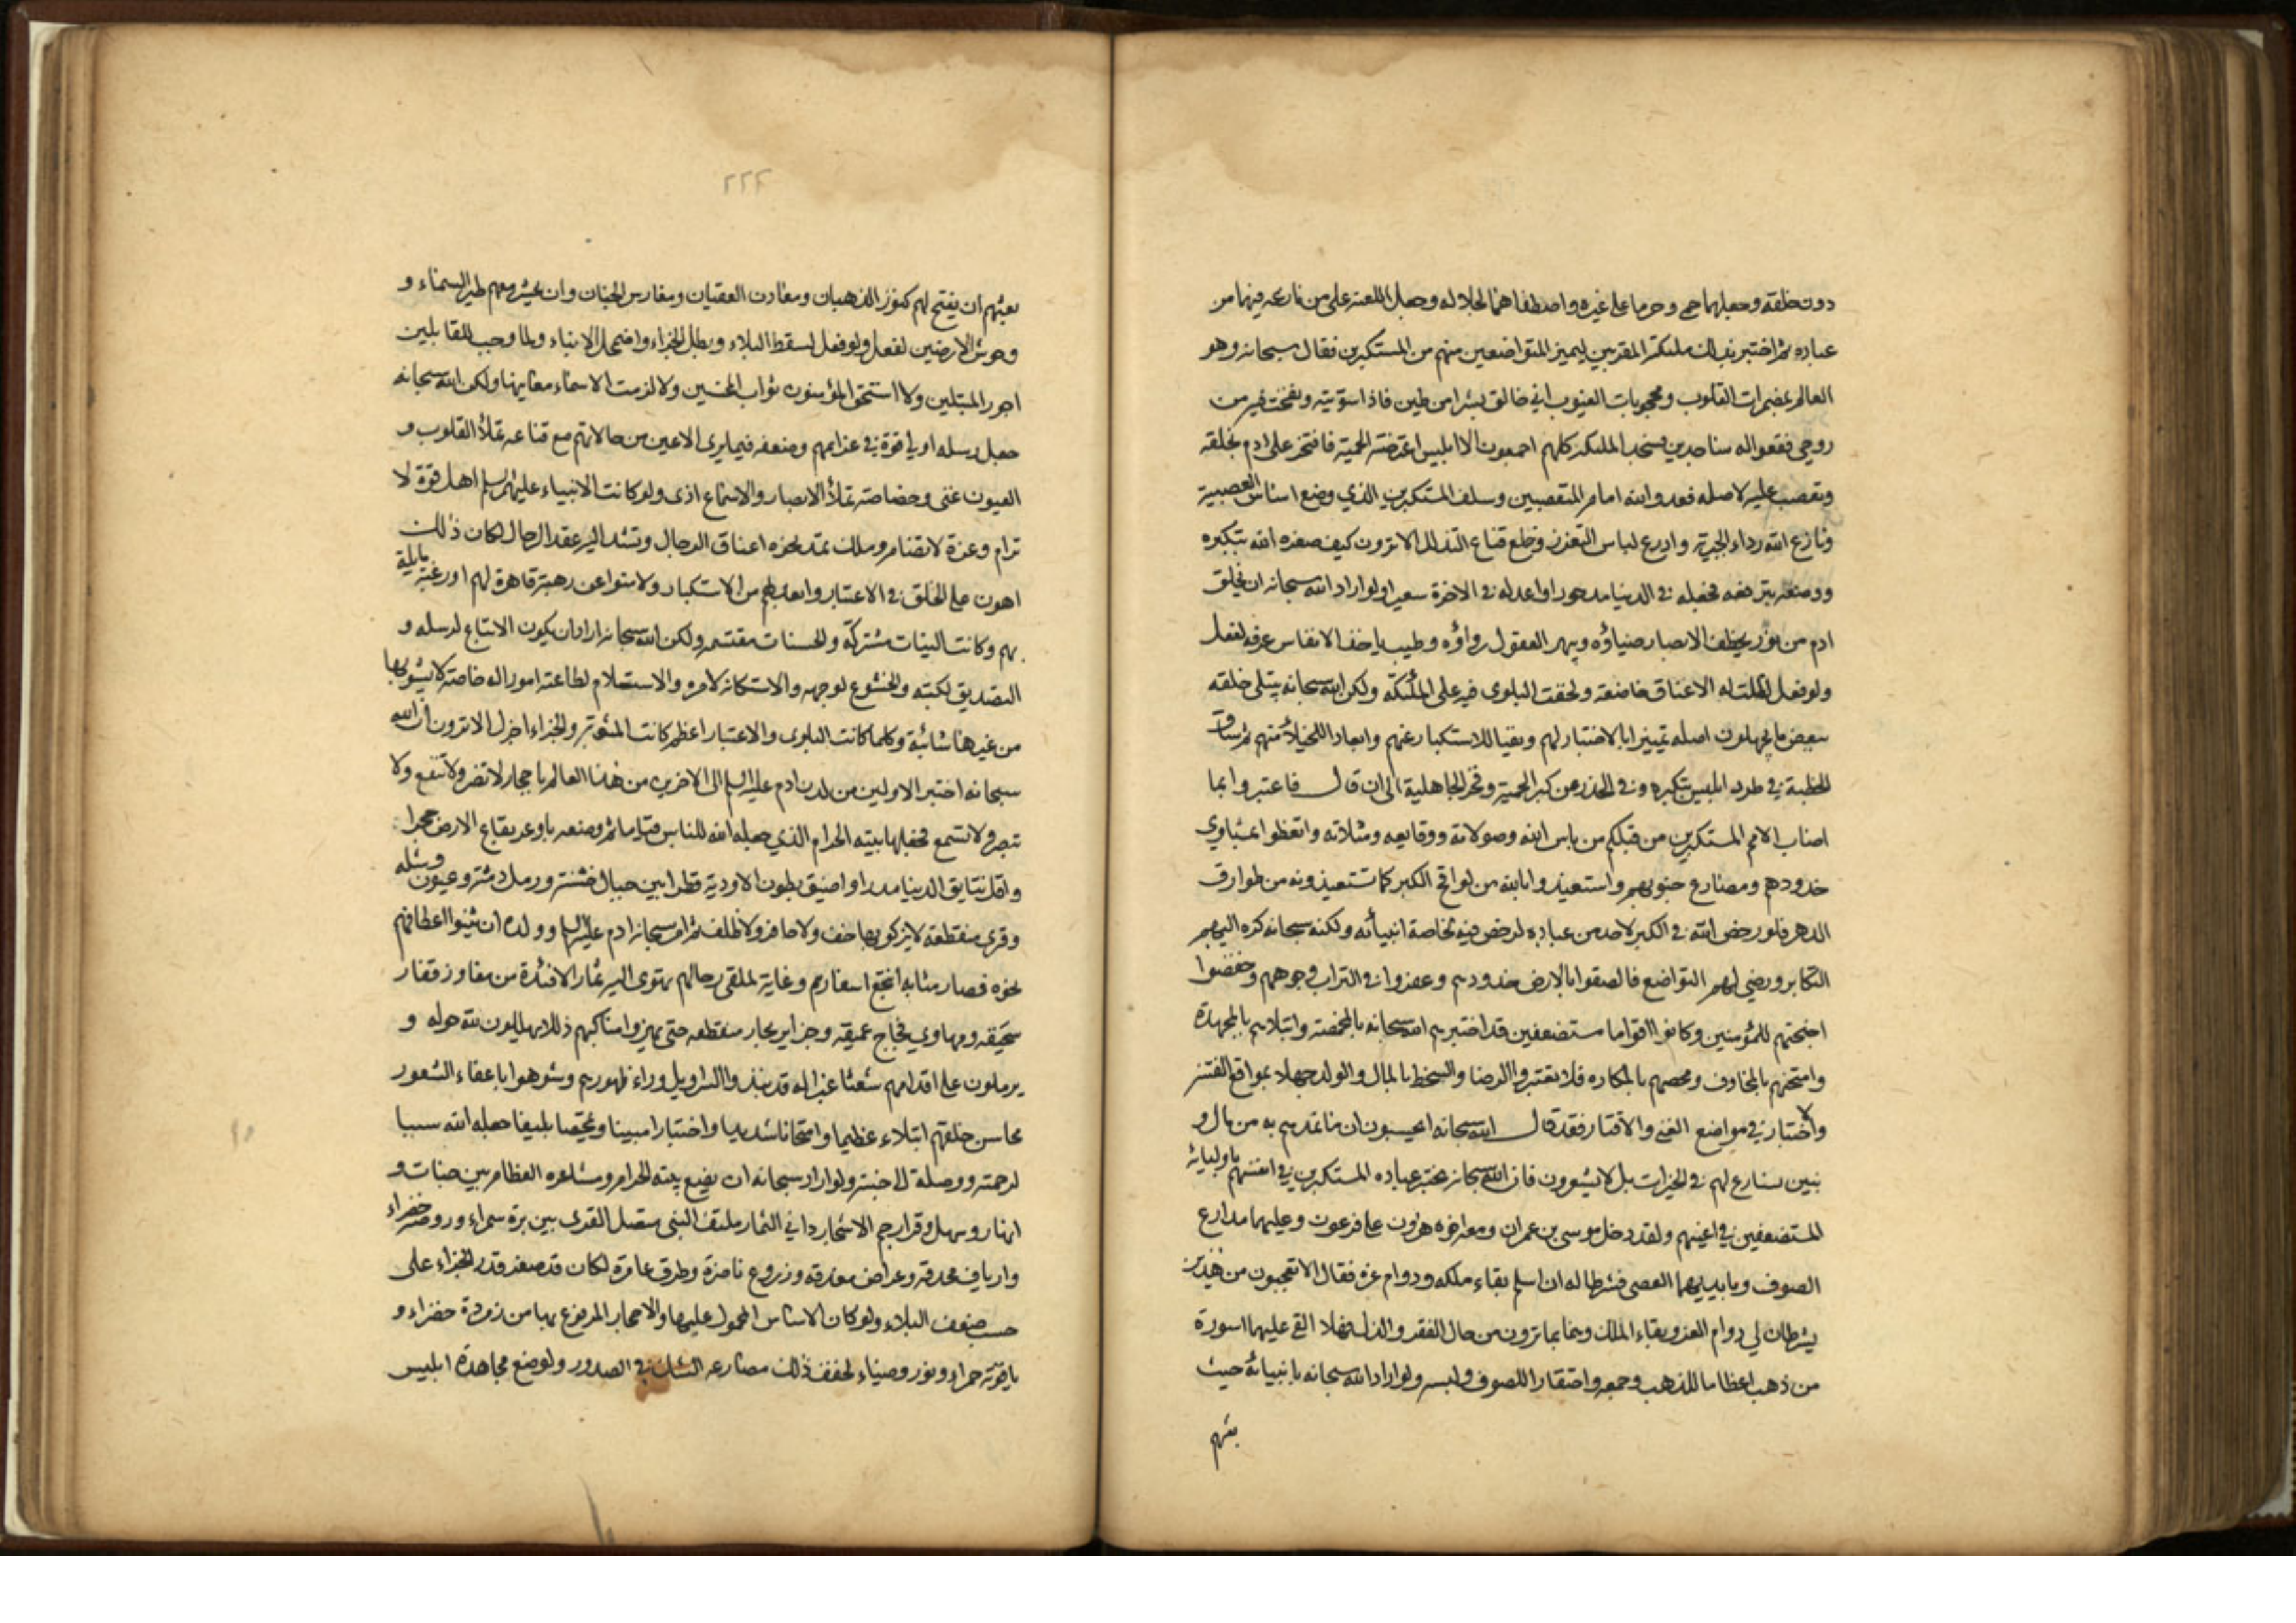 دون خلقه وجعلهما حمى وحرما على غيره واصطفاهما لجلاله وجعل اللعنة على من نازعه فيهما من
عباده ثم اختبر بذلك ملئكته المقربين ليميز المتواضعين منهم من المستكبرين فقال سبحانه وهو
العالم بمضمرات القلوب ومحجوبات الغيوب اني خالق بشرا من طين فاذا سويته ونفخت فيه من
روحي فقعوا له ساجدين فسجد الملئكة كلهم اجمعون الا ابليس اعترضته الحمية فافتخر على ادم بخلقه
وتعصب عليه لاصله فعدو الله امام المتعصبين وسلف المستكبرين الذي وضع اساس العصبية
ونازع الله رداء الجبرية وادرع لباس التعزز وخلع قناع التذلل الا ترون كيف صغره الله بتكبره
ووضعه بترفعه فجعله في الدنيا مدحورا واعد له في الاخرة سعيرا ولو اراد الله سبحانه ان يخلق
ادم من نور يخطف الابصار ضياؤه ويبهر العقول رواؤه وطيب ياخذ الانفاس عرفه لفعل
ولو فعل لظلت له الاعناق خاضعة ولخفت البلوى فيه على الملئكة ولكن الله سبحانه يبتلي خلقه
ببعض ما يجهلون اصله تمييزا بالاختبار لهم ونفيا للاستكبار عنهم وابعادا للخيلاء منهم ثم ساق
الخطبة في طرد ابليس بتكبره وفي الحذر من كبر الحمية وفخر الجاهلية الى ان قال فاعتبروا بما
اصاب الامم المستكبرين من قبلكم من باس الله وصولاته ووقايعه ومثلاته واتعظوا بمثاوي
خدودهم ومصارع جنوبهم واستعيذوا بالله من لواقح الكبر كما تستعيذونه من طوارق
الدهر فلو رخص الله في الكبر لاحد من عباده لرخص فيه لخاصة انبيائه ولكنه سبحانه كره اليهم
التكابر ورضي لهم التواضع فالصقوا بالارض خدودهم وعفروا في التراب وجوههم وخفضوا
اجنحتهم للمؤمنين وكانوا اقواما مستضعفين قد اختبرهم الله سبحانه بالمخمصة وابتلاهم بالمجهدة
وامتحنهم بالمخاوف ومحصهم بالمكاره فلا تعتبروا الرضا والسخط بالمال والولد جهلا بمواقع الفتنة
والاختبار في مواضع الغنى والاقتار فقد قال الله سبحانه ايحسبون ان ما نمدهم به من مال و
بنين نسارع لهم في الخيرات بل لا يشعرون فان الله سبحانه يختبر عباده المستكبرين في انفسهم باوليائه
المستضعفين في اعينهم ولقد دخل موسى بن عمران ومعه اخوه هرون على فرعون وعليهما مدارع
الصوف وبايديهما العصي فشرطا له ان اسلم بقاء ملكه ودوام عزه فقال الا تعجبون من هذين
يشرطان لي دوام العز وبقاء الملك وهما بما ترون من حال الفقر والذل فهلا القي عليهما اسورة
من ذهب اعظاما للذهب وجمعه واحتقارا للصوف ولبسه ولو اراد الله سبحانه بانبيائه حيث
بعثهم
٢٢٤
بعثهم ان يفتح لهم كنوز الذهبان ومعادن العقيان ومغارس الجنان وان يحشر معهم طير السماء و
وحوش الارضين لفعل ولو فعل لسقط البلاء وبطل الجزاء واضمحل الانباء ولما وجب للقابلين
اجور المبتلين ولا استحق المؤمنون ثواب المحسنين ولا لزمت الاسماء معانيها ولكن الله سبحانه
جعل رسله اولي قوة في عزايمهم وضعفه فيما يرى الاعين من حالاتهم مع قناعه تملأ القلوب و
العيون غنى وخصاصة تملأ الابصار والاسماع اذى ولو كانت الانبياء عليهم السلم اهل قوة لا
ترام وعزة لا تضام وملك تمتد نحوه اعناق الرجال وتشد اليه عقد الرحال لكان ذلك
اهون على الخلق في الاعتبار وابعد لهم من الاستكبار ولامنوا عن رهبة قاهرة لهم او رغبة مايلة
بهم وكانت النيات مشتركة والحسنات مقتسمه ولكن الله سبحانه اراد ان يكون الاتباع لرسله و
التصديق لكتبه والخشوع لوجهه والاستكانة لامره والاستسلام لطاعته امورا له خاصة لا يشوبها
من غيرها شائبة وكلما كانت البلوى والاعتبار اعظم كانت المثوبة والجزاء اجزل الا ترون ان الله
سبحانه اختبر الاولين من لدن ادم عليه السلم الى الاخرين من هذا العالم باحجار لا تضر ولا تنفع ولا
تبصر ولا تسمع فجعلها بيته الحرام الذي جعله الله للناس قياما ثم وضعه باوعر بقاع الارض حجرا
واقل نتايق الدنيا مدرا واضيق بطون الاودية قطرا بين جبال خشنة ورمال دمثة وعيون وشله
وقرى منقطعة لا يزكو بها خف ولا حافر ولا ظلف ثم امر سبحانه ادم عليه السلم وولده ان يثنوا اعطافهم
نحوه فصار مثابة لمنتجع اسفارهم وغاية لملقى رحالهم تهوي اليه ثمار الافئدة من مفاوز قفار
سحيقه ومهاوي فجاج عميقه وجزاير بحار منقطعه حتى يهزوا مناكبهم ذللا يهللون لله حوله و
يرملون على اقدامهم شعثا غبرا له قد نبذوا السراويل وراء ظهورهم وشوهوا باعفاء الشعور
محاسن خلقهم ابتلاء عظيما وامتحانا شديدا واختبارا مبينا وتمحيصا بليغا جعله الله سببا
لرحمته ووصلة الى جنته ولو اراد سبحانه ان يضع بيته الحرام ومشاعره العظام بين جنات و
انهار وسهل وقرار جم الاشجار داني الثمار ملتف البنى متصل القرى بين برة سمراء وروضة خضراء
وارياف محدقه وعراص مغدقه وزروع ناضرة وطرق عامرة لكان قد صغر قدر الجزاء على
حسب ضعف البلاء ولو كان الاساس المحمول عليها والاحجار المرفوع بها من زمردة خضراء و
ياقوته حمراء ونور وضياء لخفف ذلك مصارعه الشك في الصدور ولوضع مجاهدة ابليس